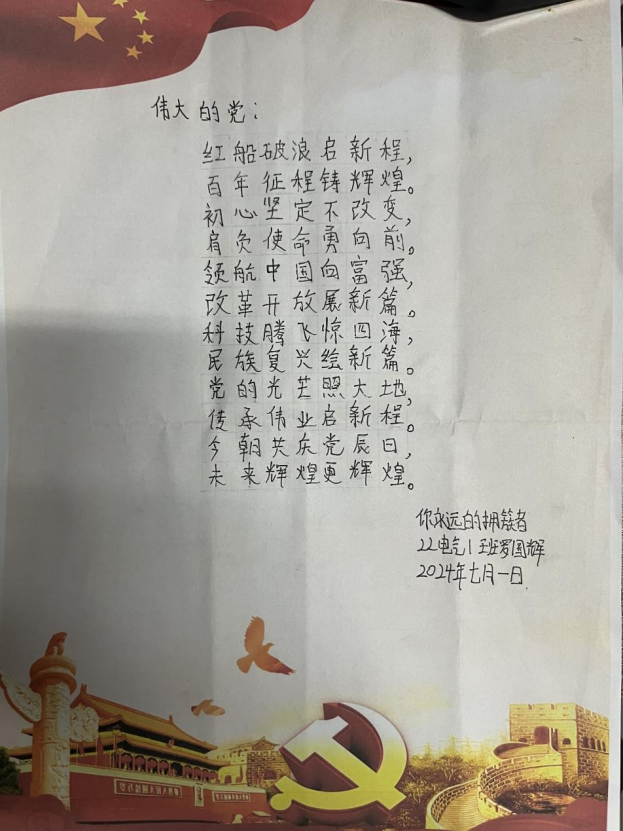 伟大的党：
红船破浪启新程，
百年征程铸辉煌。
初心坚定不改变，
肩负使命勇向前。
领航中国向富强，
改革开放展新篇。
科技腾飞惊四海，
民族复兴绘新篇。
党的光芒照大地，
传承伟业启新程。
今朝共庆党辰日，
未来辉煌更辉煌。
你永远的拥簇者
22电气1班罗国辉
2024年七月一日.